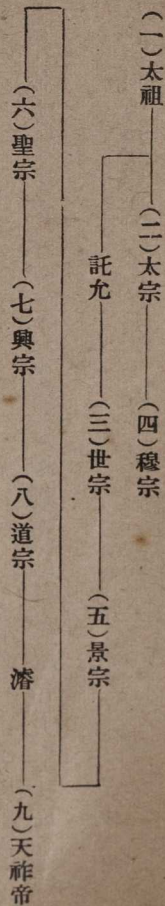 (一)太祖
(二)太宗
(四)穆宗
託允
(三)世宗
(五)景宗
(六)聖宗
(七)興宗
(八)道宗
濬
(九)天祚帝